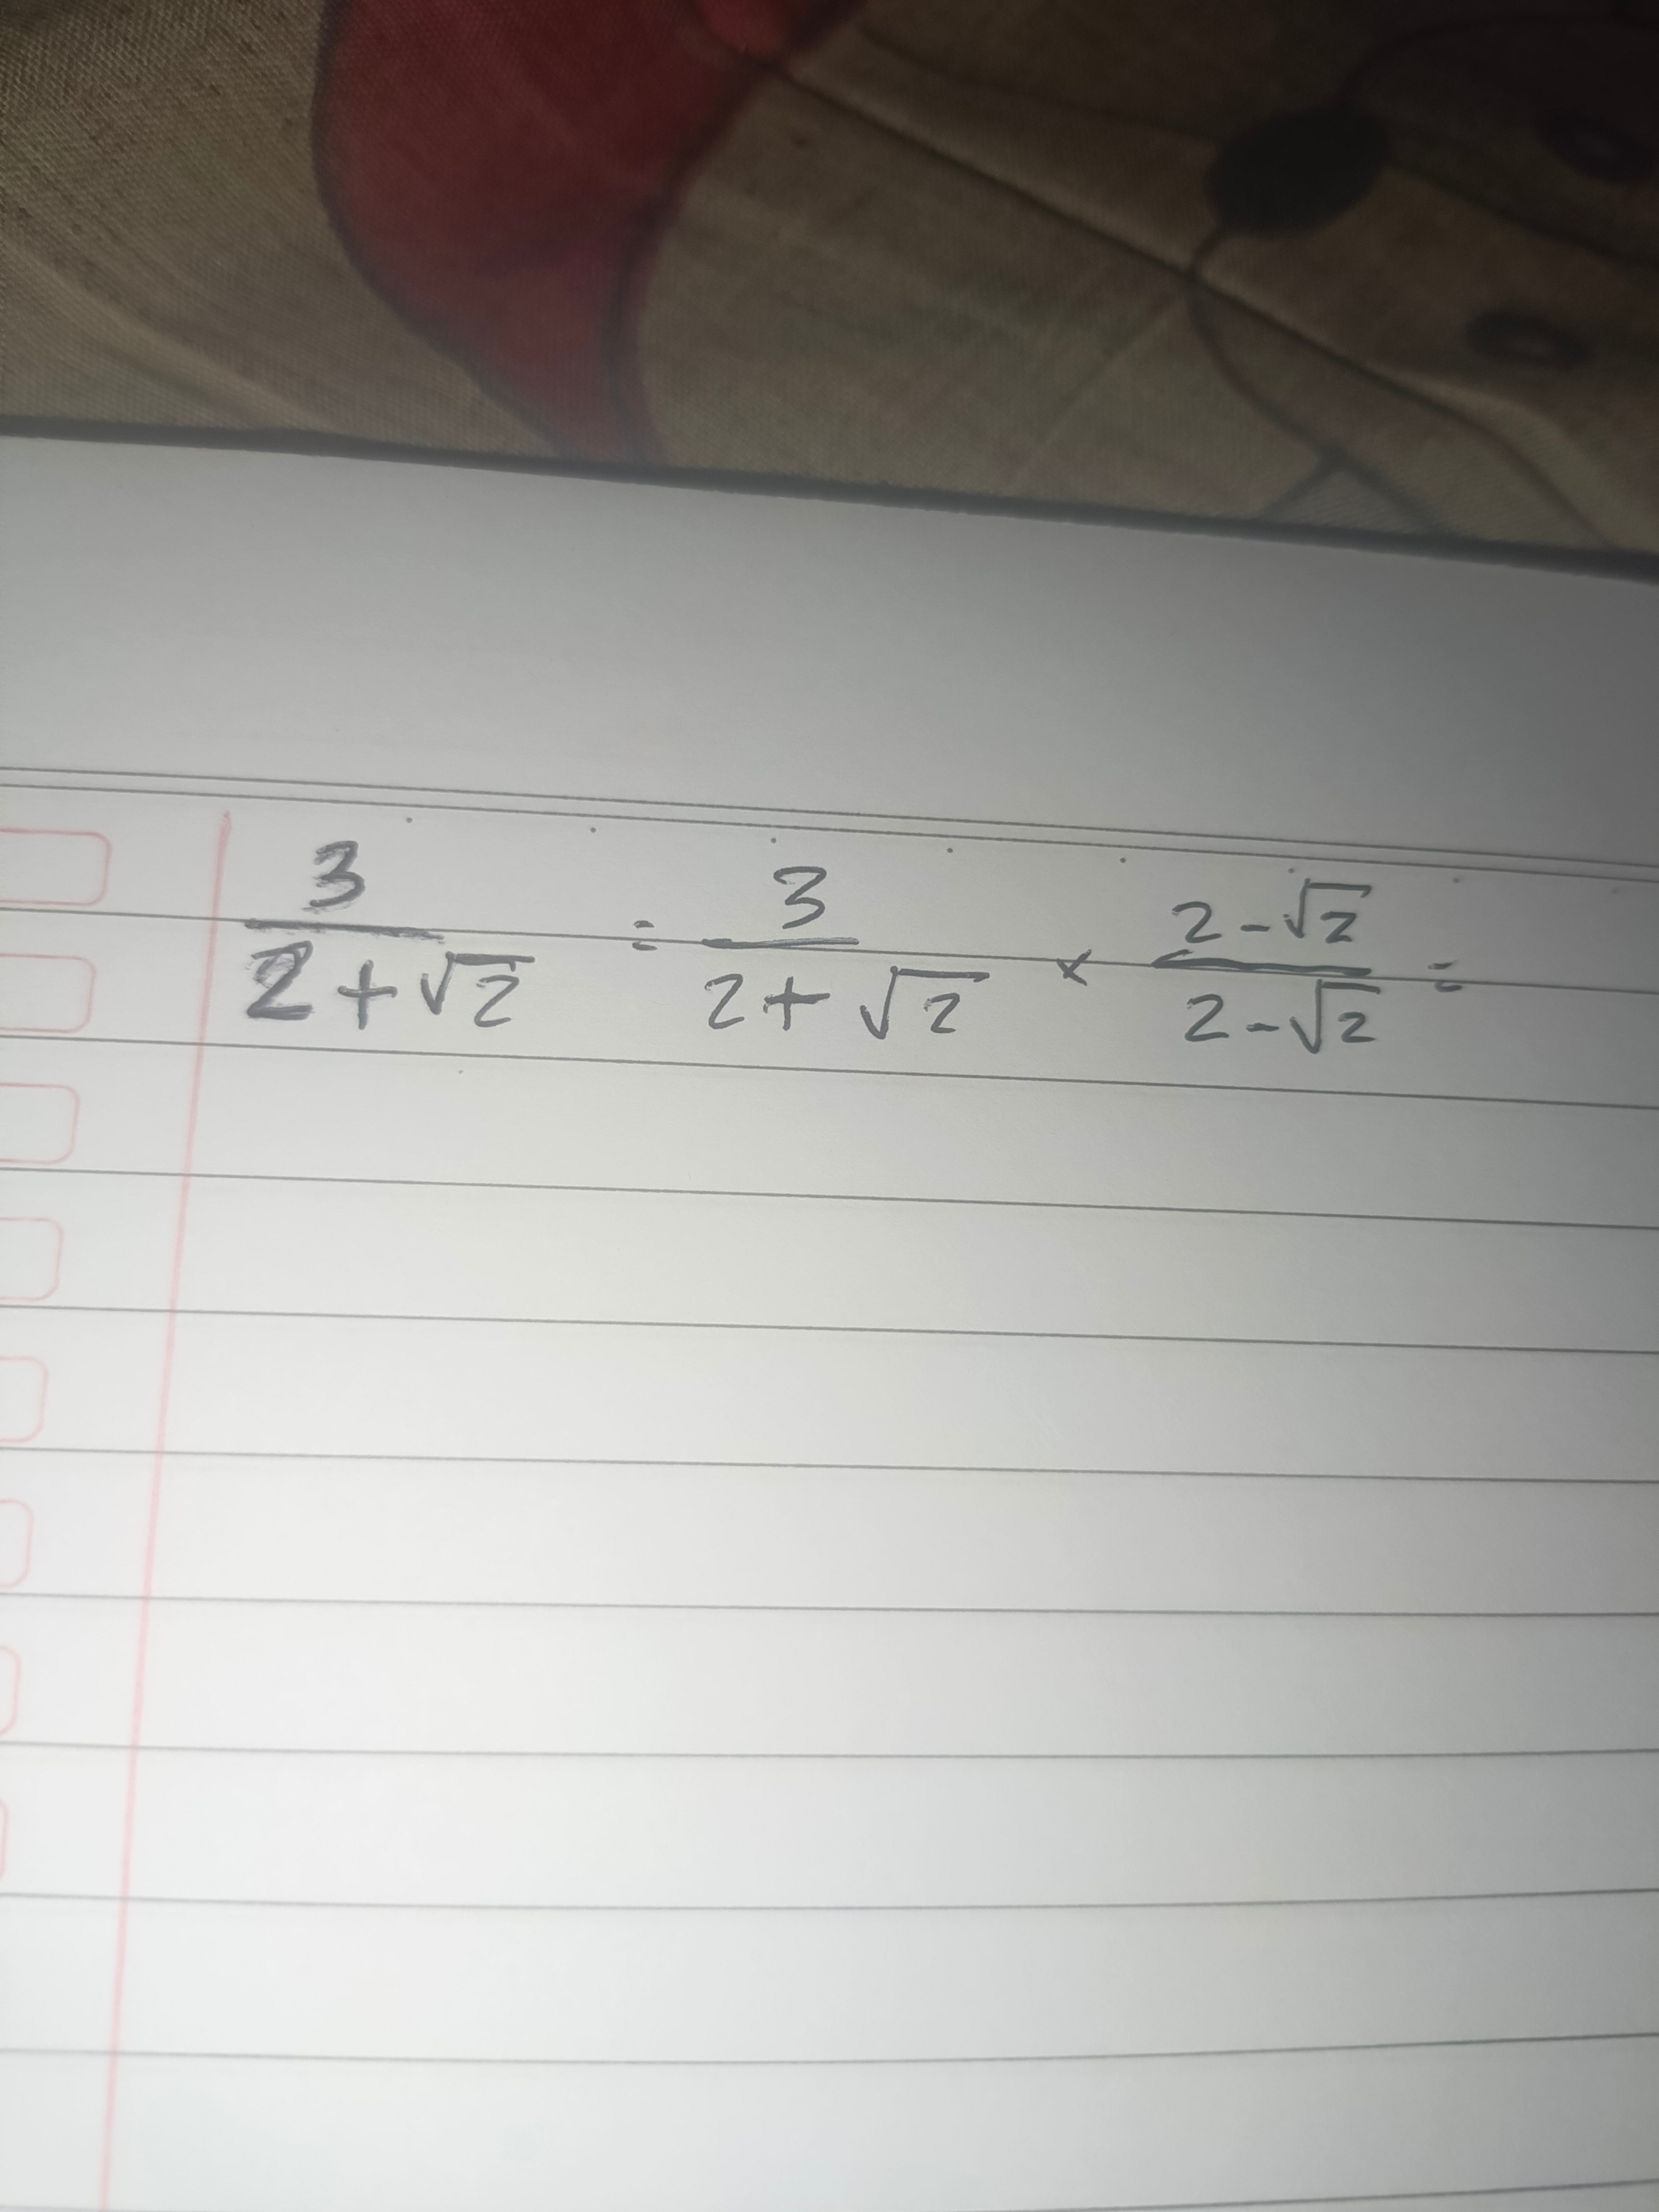 3/(2+√2) = 3/(2+√2) × (2-√2)/(2-√2) =